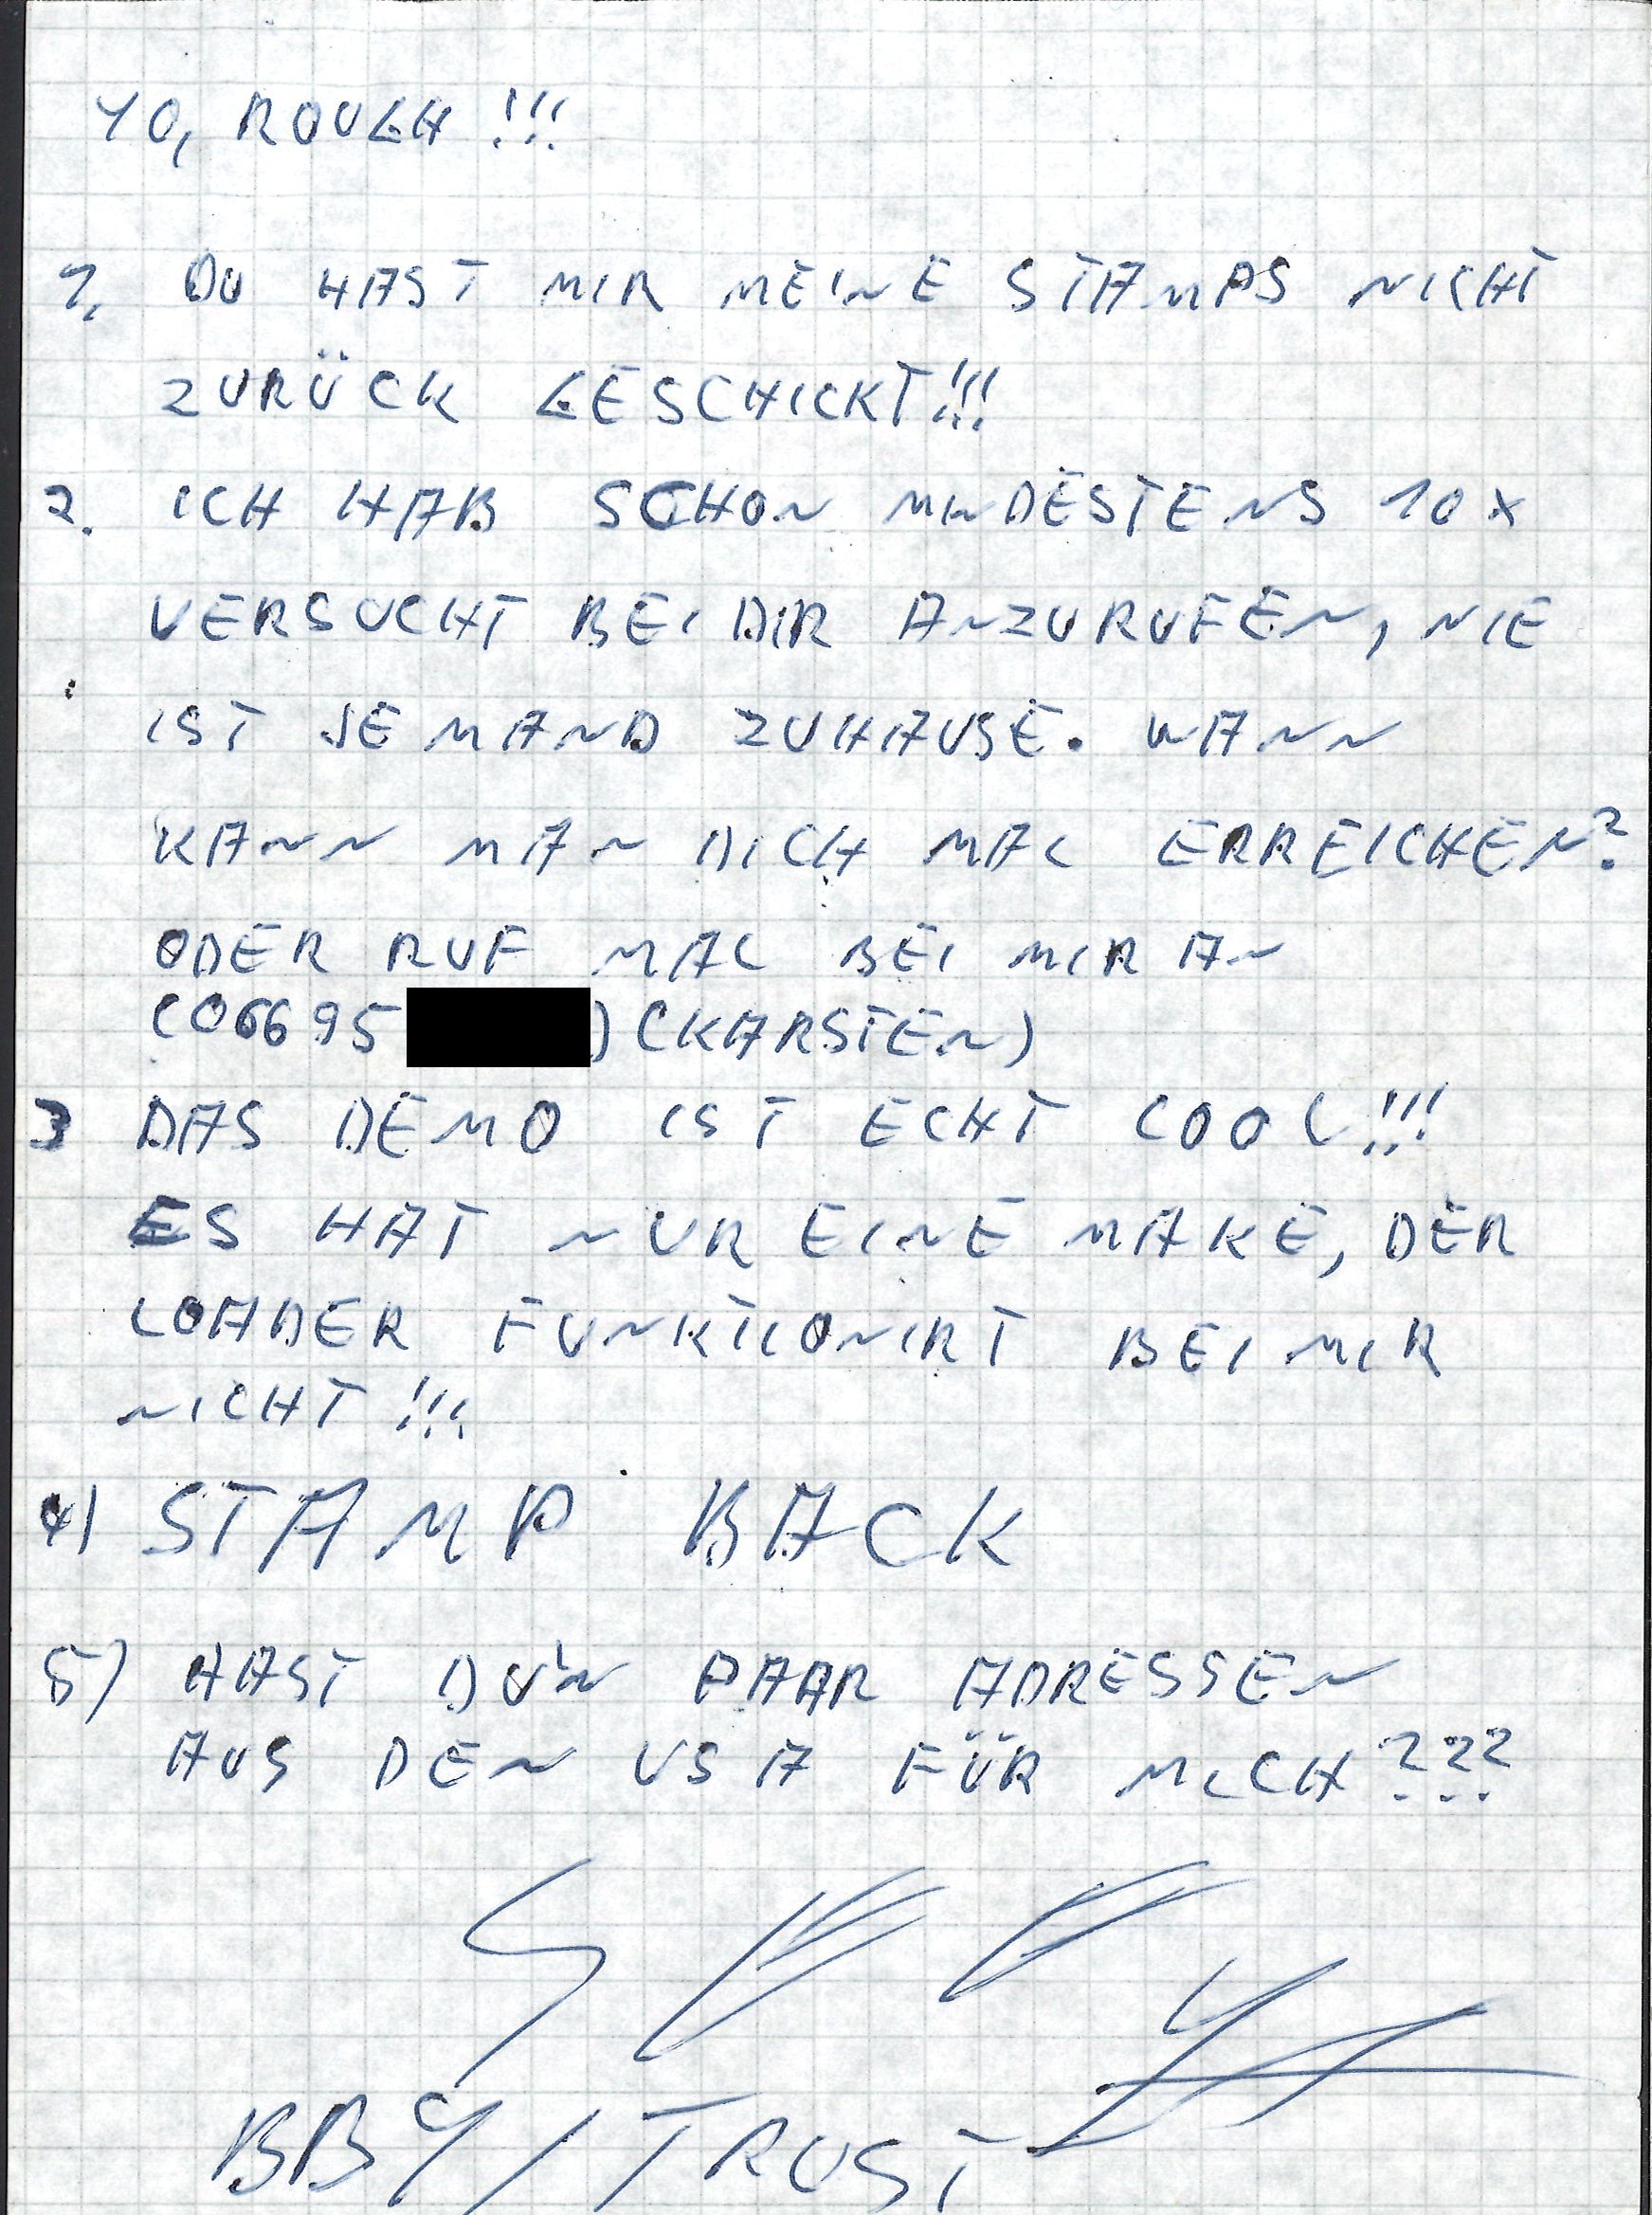 YO, ROUGH !!!
1. DU HAST MIR MEINE STAMPS NICHT
ZURÜCK GESCHICKT!!!
2. ICH HAB SCHON MINDESTENS 10 x
VERSUCHT BEI DIR ANZURUFEN, NIE
IST JEMAND ZUHAUSE. WANN
KANN MAN DICH MAL ERREICHEN?
ODER RUF MAL BEI MIR AN
(06695 ) (KARSTEN)
3 DAS DEMO IST ECHT COOL!!!
ES HAT NUR EINE MAKE, DER
LOADER FUNKTIONIRT BEI MIR
NICHT !!!
4) STAMP BACK
5) HAST DU'N PAAR ADRESSEN
AUS DEN USA FÜR MICH???
BBY / TRUST